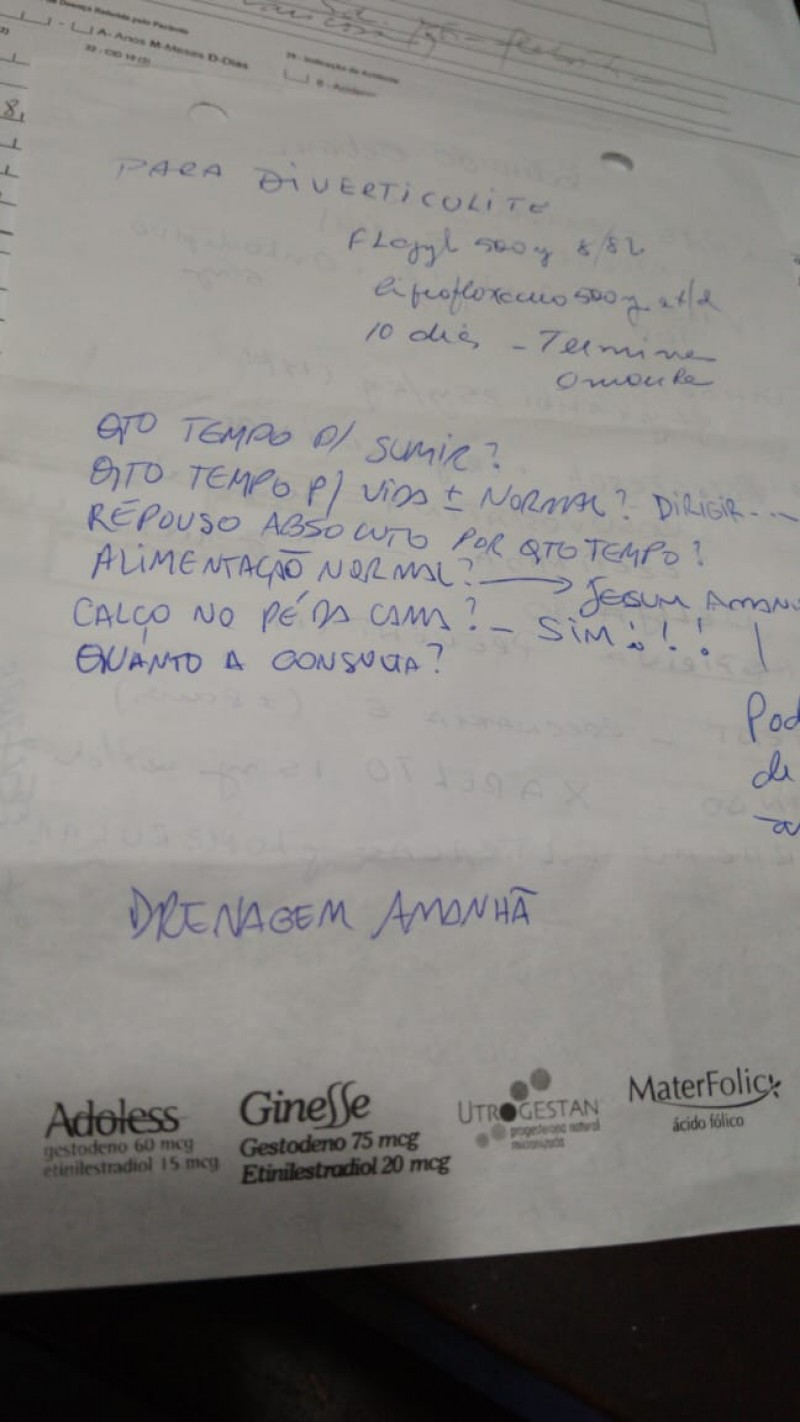 de Doença Referida pelo Paciente
A- Anos M-Meses D-Dias
22 - CID 10 (3)
8,
PARA DIVERTICULITE
Flagyl 500 8/8h
500
10 dias - Termina
QTO TEMPO P/ SUMIR?
QTO TEMPO P/ VIDA ± NORMAL? DIRIGIR ...
REPOUSO ABSOLUTO POR QTO TEMPO?
ALIMENTAÇÃO NORMAL? → JEJUM
CALÇO NO PÉ DA CAMA? - SIM!!!
QUANTO A CONSULTA?
Pod
de
DRENAGEM AMANHÃ
Adoless
gestodeno 60 mcg
etinilestradiol 15 mcg
Ginesse
Gestodeno 75 mcg
Etinilestradiol 20 mcg
UTROGESTAN
progesterona natural
micronizada
MaterFolic
ácido fólico